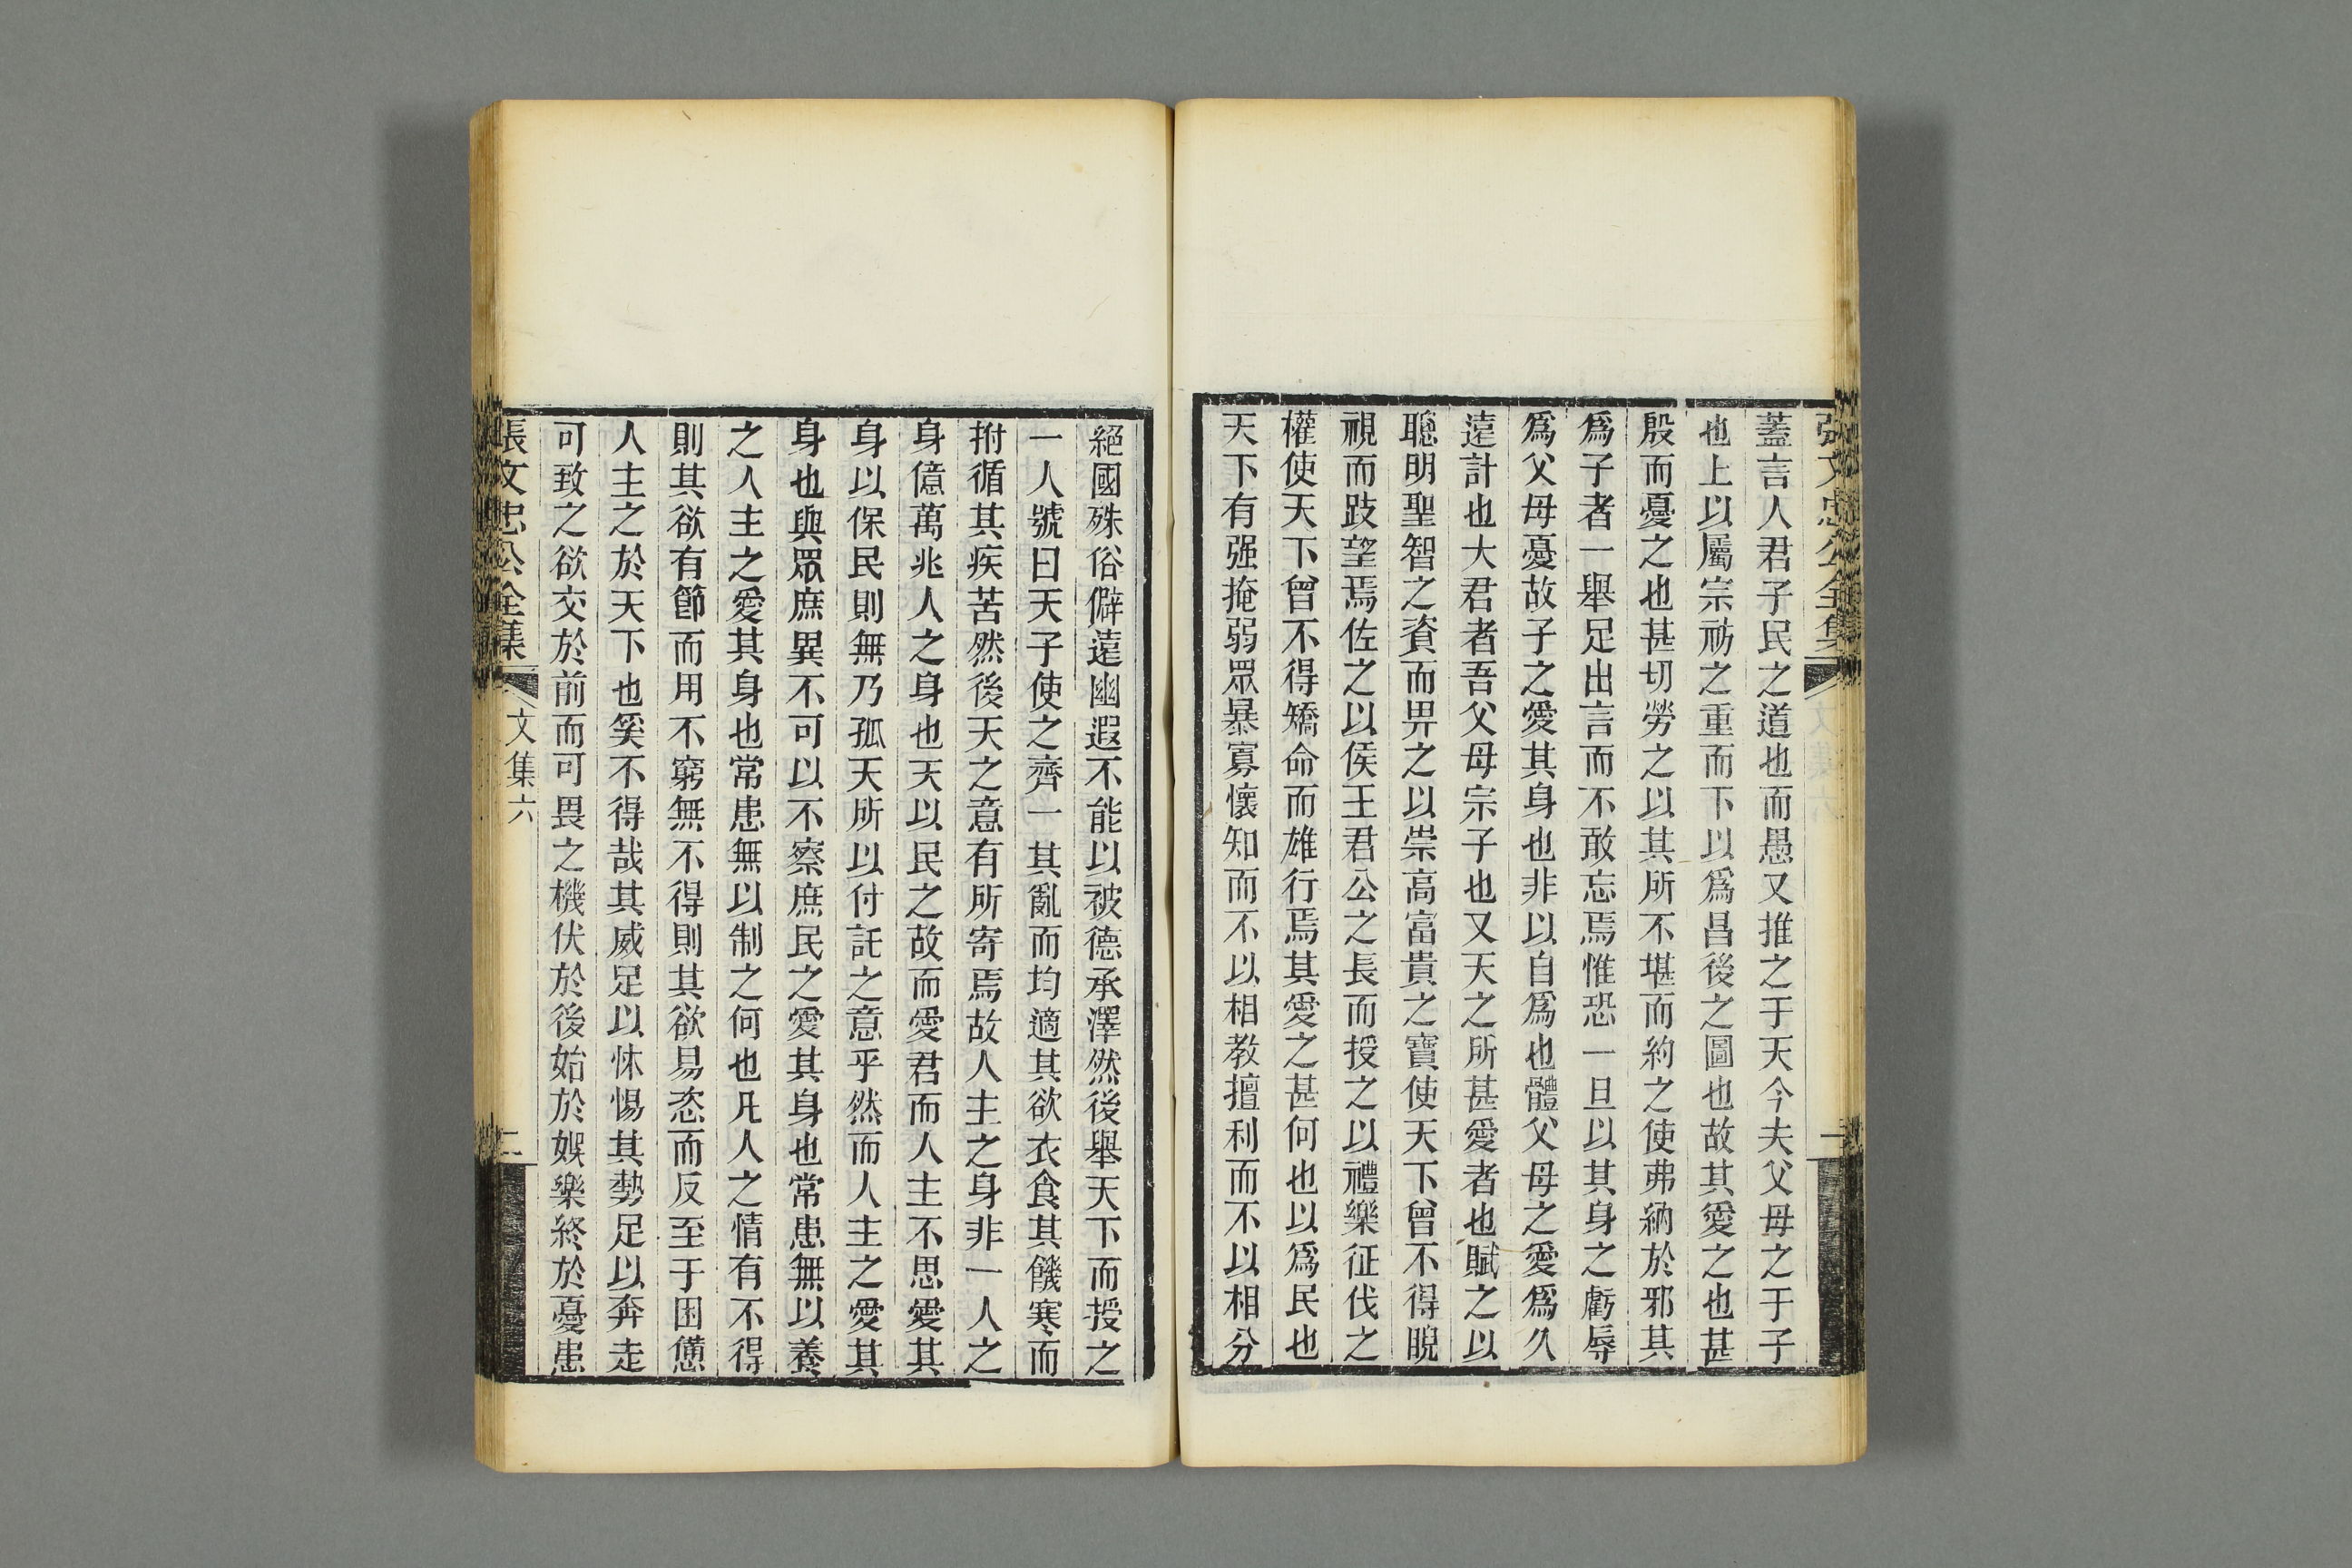 張文忠公全集
文集六
一
蓋言人君子民之道也而愚又推之于天今夫父母之于子
也上以屬宗祊之重而下以爲昌後之圖也故其愛之也甚
殷而憂之也甚切勞之以其所不堪而約之使弗納於邪其
爲子者一舉足出言而不敢忘焉惟恐一旦以其身之虧辱
爲父母憂故子之愛其身也非以自爲也體父母之愛爲久
遠計也大君者吾父母宗子也又天之所甚愛者也賦之以
聰明聖智之資而畀之以崇高富貴之寶使天下曾不得睨
視而跂望焉佐之以侯王君公之長而授之以禮樂征伐之
權使天下曾不得矯命而雄行焉其愛之甚何也以爲民也
天下有强掩弱眾暴寡懷知而不以相教擅利而不以相分
絕國殊俗僻遠幽遐不能以被德承澤然後舉天下而授之
一人號曰天子使之齊一其亂而均適其欲衣食其饑寒而
拊循其疾苦然後天之意有所寄焉故人主之身非一人之
身億萬兆人之身也天以民之故而愛君而人主不思愛其
身以保民則無乃孤天所以付託之意乎然而人主之愛其
身也與眾庶異不可以不察庶民之愛其身也常患無以養
之人主之愛其身也常患無以制之何也凡人之情有不得
則其欲有節而用不窮無不得則其欲易恣而反至于困憊
人主之於天下也奚不得哉其威足以怵惕其勢足以奔走
可致之欲交於前而可畏之機伏於後始於娛樂終於憂患
張文忠公全集
文集六
二